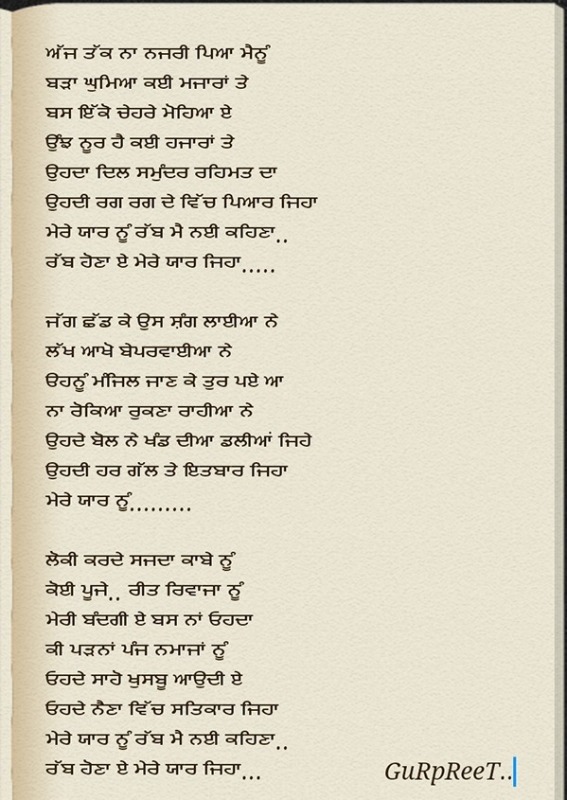 ਅੱਜ ਤੱਕ ਨਾ ਨਜਰੀ ਪਿਆ ਮੈਨੂੰ
ਬੜਾ ਘੁਮਿਆ ਕਈ ਮਜਾਰਾਂ ਤੇ
ਬਸ ਇੱਕੋ ਚੇਹਰੇ ਮੋਹਿਆ ਏ
ਉਂਝ ਨੂਰ ਹੈ ਕਈ ਹਜਾਰਾਂ ਤੇ
ਉਹਦਾ ਦਿਲ ਸਮੁੰਦਰ ਰਹਿਮਤ ਦਾ
ਉਹਦੀ ਰਗ ਰਗ ਦੇ ਵਿੱਚ ਪਿਆਰ ਜਿਹਾ
ਮੇਰੇ ਯਾਰ ਨੂੰ ਰੱਬ ਮੈ ਨਈ ਕਹਿਣਾ..
ਰੱਬ ਹੋਣਾ ਏ ਮੇਰੇ ਯਾਰ ਜਿਹਾ.....
ਜੱਗ ਛੱਡ ਕੇ ਉਸ ਸ਼ੰਗ ਲਾਈਆ ਨੇ
ਲੱਖ ਆਖੋ ਬੇਪਰਵਾਈਆ ਨੇ
ਓਹਨੂੰ ਮੰਜਿਲ ਜਾਣ ਕੇ ਤੁਰ ਪਏ ਆ
ਨਾ ਰੋਕਿਆ ਰੁਕਣਾ ਰਾਹੀਆ ਨੇ
ਉਹਦੇ ਬੋਲ ਨੇ ਖੰਡ ਦੀਆ ਡਲੀਆਂ ਜਿਹੇ
ਉਹਦੀ ਹਰ ਗੱਲ ਤੇ ਇਤਬਾਰ ਜਿਹਾ
ਮੇਰੇ ਯਾਰ ਨੂੰ.........
ਲੋਕੀ ਕਰਦੇ ਸਜਦਾ ਕਾਬੇ ਨੂੰ
ਕੋਈ ਪੂਜੇ.. ਰੀਤ ਰਿਵਾਜਾ ਨੂੰ
ਮੇਰੀ ਬੰਦਗੀ ਏ ਬਸ ਨਾਂ ਓਹਦਾ
ਕੀ ਪੜਨਾਂ ਪੰਜ ਨਮਾਜਾਂ ਨੂੰ
ਓਹਦੇ ਸਾਹੋ ਖੁਸਬੂ ਆਉਦੀ ਏ
ਓਹਦੇ ਨੈਣਾ ਵਿੱਚ ਸਤਿਕਾਰ ਜਿਹਾ
ਮੇਰੇ ਯਾਰ ਨੂੰ ਰੱਬ ਮੈ ਨਈ ਕਹਿਣਾ..
ਰੱਬ ਹੋਣਾ ਏ ਮੇਰੇ ਯਾਰ ਜਿਹਾ...
GuRpReeT..